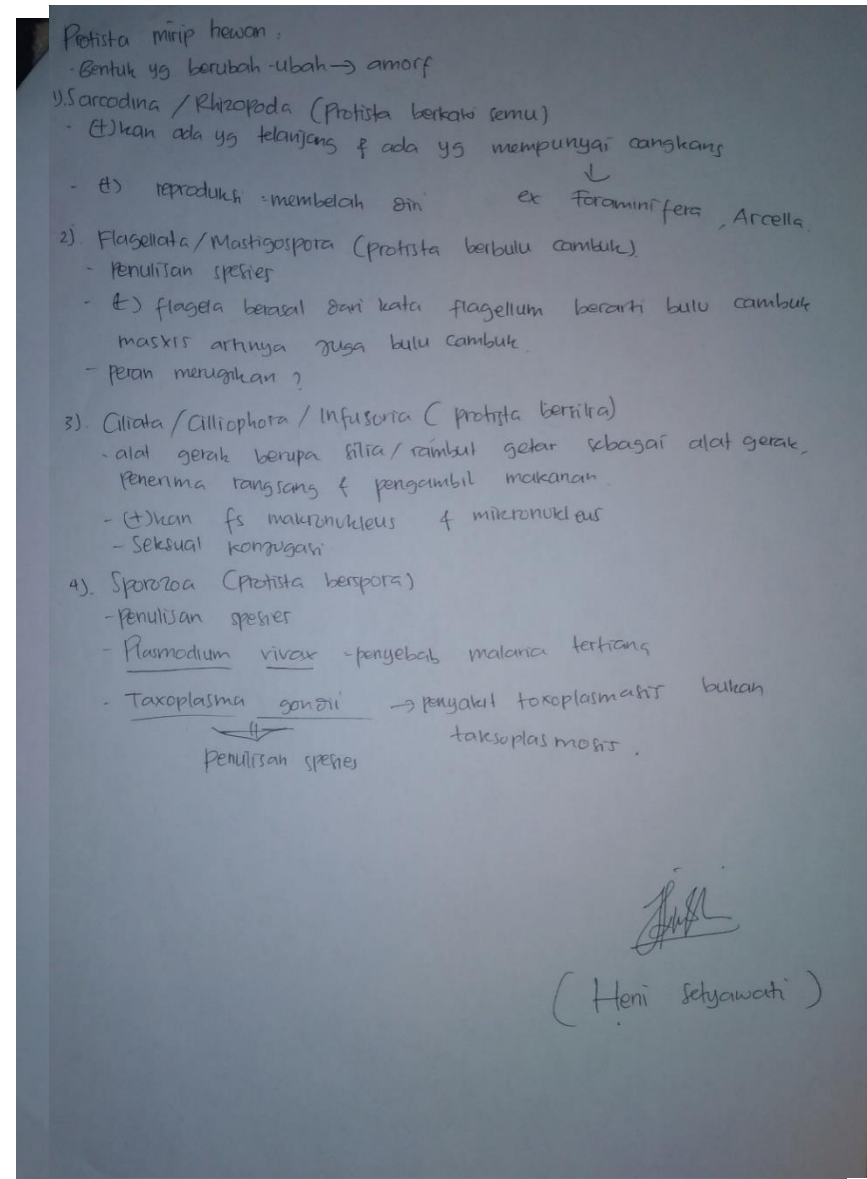 Protista mirip hewan.
- Bentuk yg berubah-ubah → amorf
1). Sarcodina / Rhizopoda (Protista berkaki semu)
- (+)kan ada yg telanjang & ada yg mempunyai cangkang
↓
- (+) reproduksi = membelah diri ex Foraminifera, Arcella
2). Flagellata / Mastigospora (protista berbulu cambuk)
- Penulisan spesies
- (+) flagela berasal dari kata flagellum berarti bulu cambuk
masxis artinya juga bulu cambuk
- peran merugikan ?
3). Ciliata / Cilliophora / Infusoria ( protista bersilia)
- alat gerak berupa silia / rambut getar sebagai alat gerak,
penerima rangsang & pengambil makanan
- (+)kan fs makronukleus & mikronukleus
- Seksual konjugasi
4). Sporozoa (Protista berspora)
- Penulisan spesies
- Plasmodium vivax - penyebab malaria tertiana
- Taxoplasma gondii → penyakit toxoplasmasis bukan
taksoplasmosis.
Penulisan spesies
( Heni Setyawati )